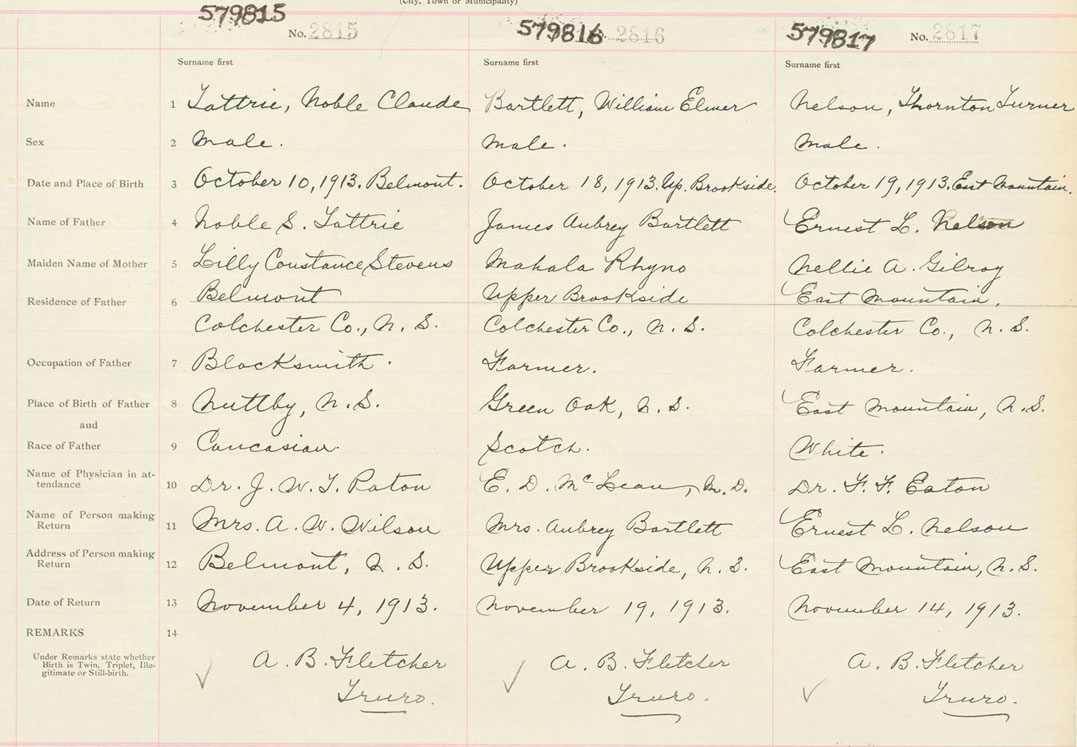 (City, Town or Municipality)
579815 No. 2815 579816 No. 2816 579817 No. 2817
Surname first Surname first Surname first
Name 1 Tattrie, Noble Claude Bartlett, William Elmer Nelson, Thornton Turner
Sex 2 Male. Male. Male.
Date and Place of Birth 3 October 10, 1913. Belmont. October 18, 1913. Up. Brookside. October 19, 1913. East Mountain.
Name of Father 4 Noble S. Tattrie James Aubrey Bartlett Ernest L. Nelson
Maiden Name of Mother 5 Lilly Constance Stevens Mahala Rhyno Nellie A. Gilroy
Residence of Father 6 Belmont Upper Brookside East Mountain,
Colchester Co., N. S. Colchester Co., N. S. Colchester Co., N. S.
Occupation of Father 7 Blacksmith. Farmer. Farmer.
Place of Birth of Father 8 Nuttby, N. S. Green Oak, N. S. East Mountain, N. S.
and
Race of Father 9 Caucasian Scotch. White.
Name of Physician in at-
tendance 10 Dr. J. W. T. Paton E. D. McLean, M. D. Dr. F. F. Eaton
Name of Person making
Return 11 Mrs. A. W. Wilson Mrs. Aubrey Bartlett Ernest L. Nelson
Address of Person making
Return 12 Belmont, N. S. Upper Brookside, N. S. East Mountain, N. S.
Date of Return 13 November 4, 1913. November 19, 1913. November 14, 1913.
REMARKS 14
Under Remarks state whether
Birth is Twin, Triplet, Ille-
gitimate or Still-birth.
A. B. Fletcher A. B. Fletcher A. B. Fletcher
Truro. Truro. Truro.